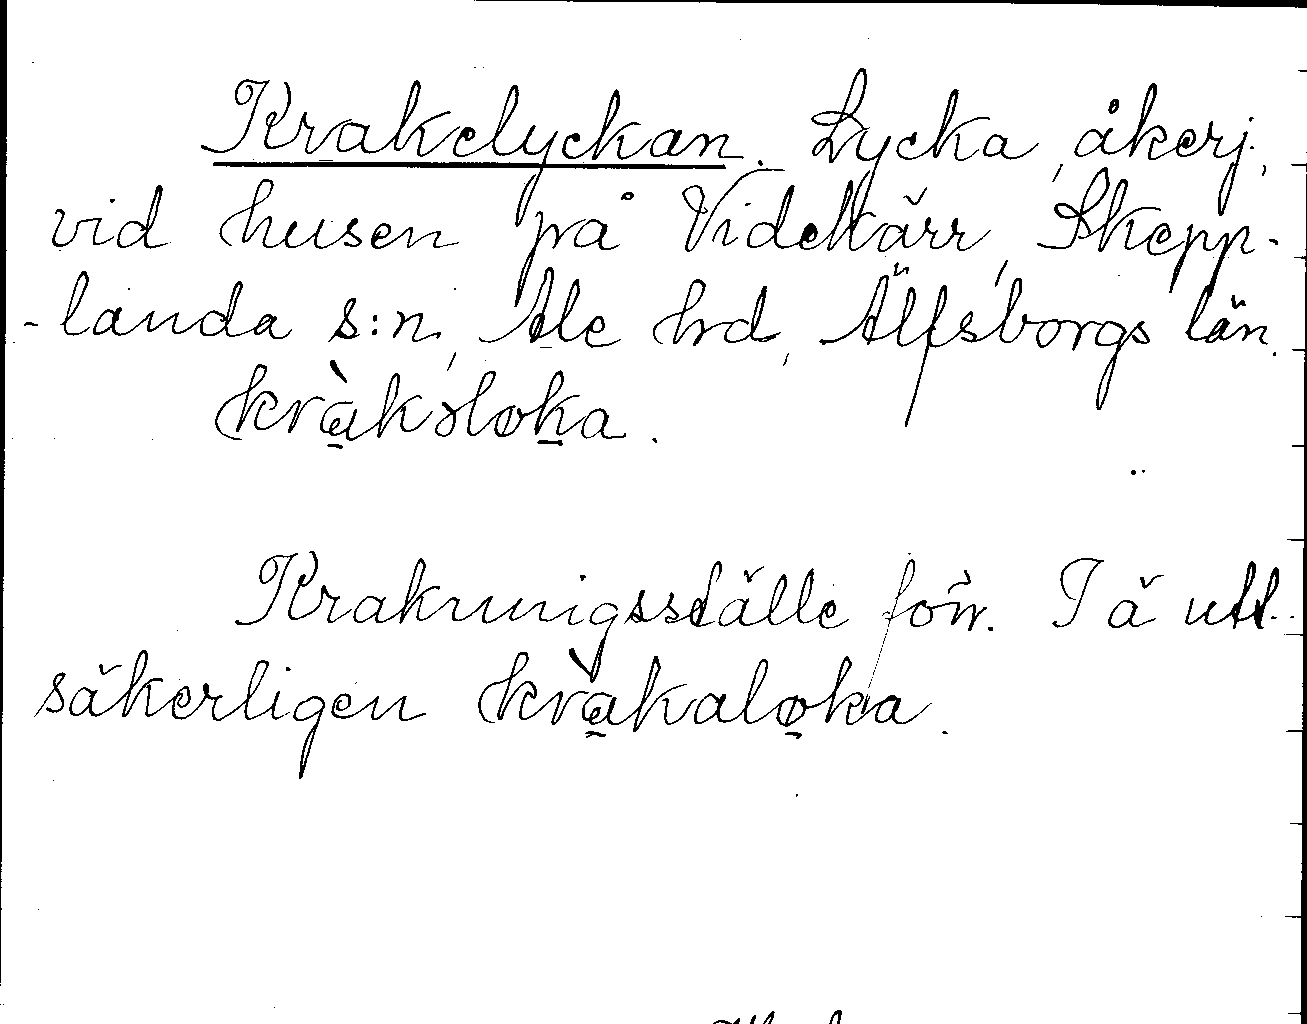 Krakelyckan. Lycka, åkerj.,
vid husen på Videkärr, Skepp-
-landa s:n, Ale hrd, Älfsborgs län.
kràkəloka.
Krakningsställe förr. I ä utt.
säkerligen kràkaloka.